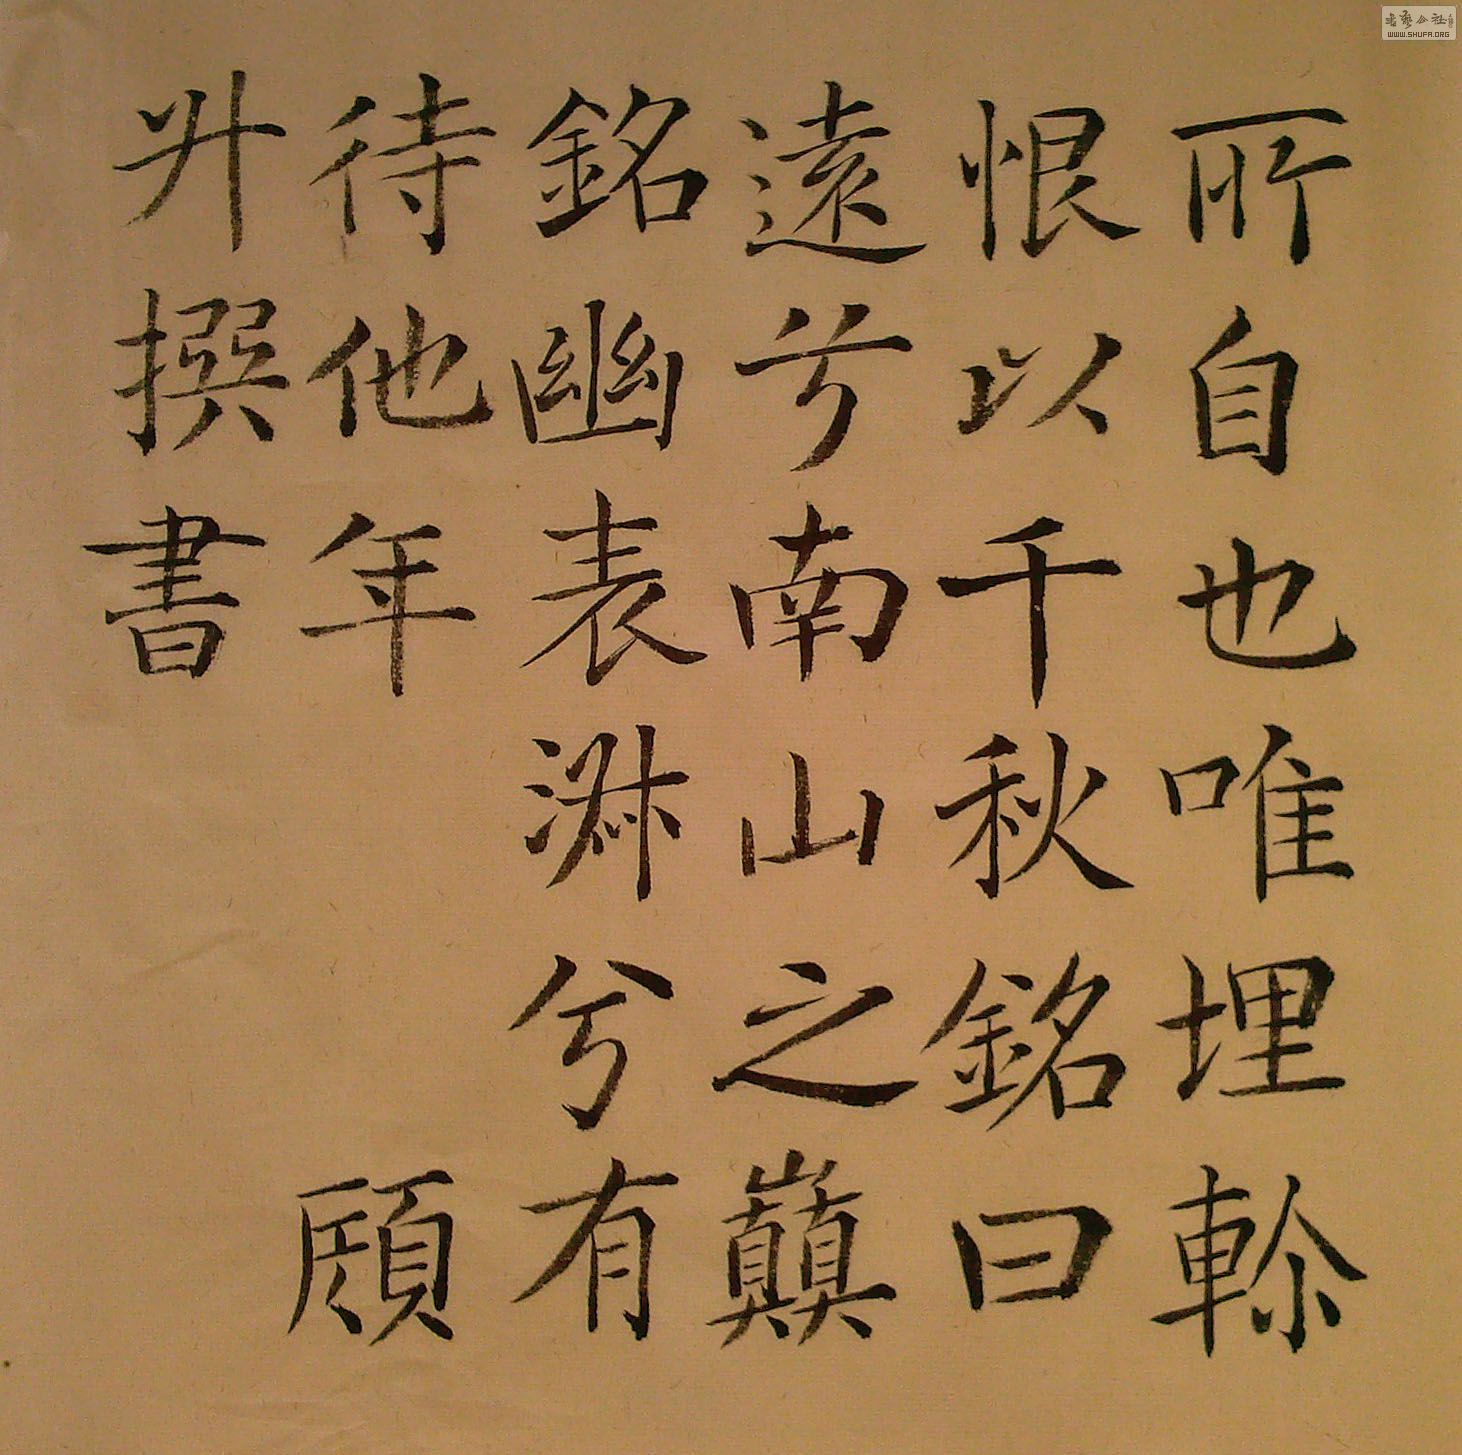 所自也唯埋軫
恨以千秋銘曰
遠兮南山之巔
銘幽表淵兮有
待他年 顧
升撰書
书艺公社
WWW.SHUFA.ORG